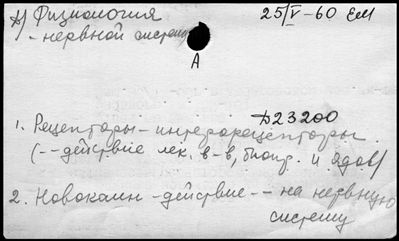 Физиология 25/V-60
- нервной систем
А
Д23200
1. Рецепторы - интерорецепторы
(-- действие лек. в-в, биопр. и ядов)
2. Новокаин - действие -- на нервную
систему